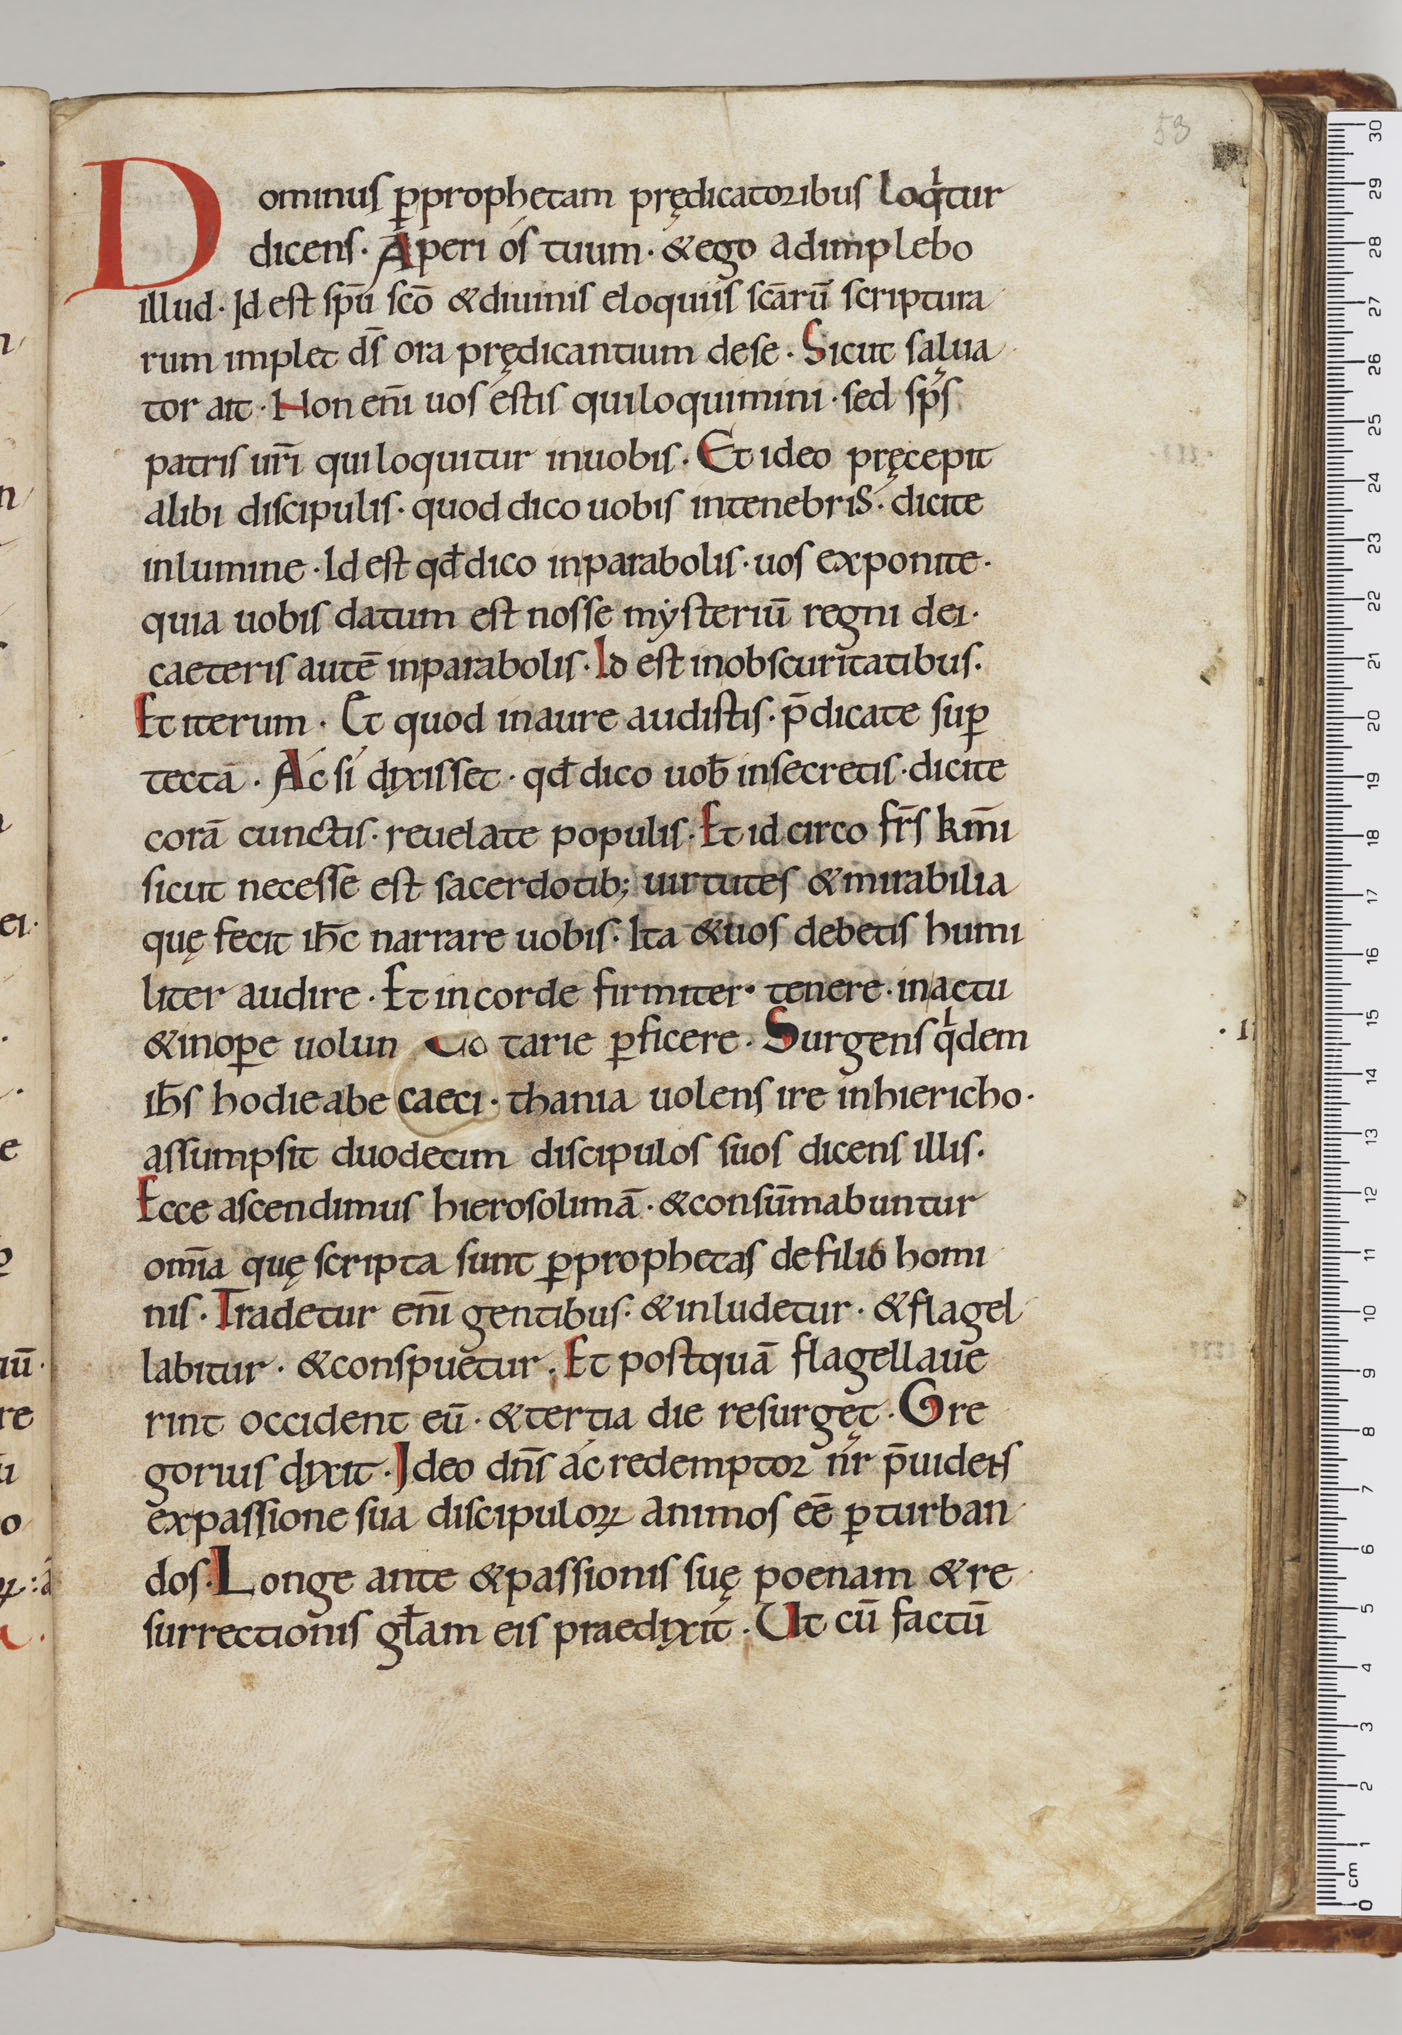 53
Dominus ꝑprophetam prędicatoribus loqͥtur
dicens · Aperi ós tuum · &ego adimplebo
illud · Id est sp̄u sc̄o &diuinis eloquiis sc̄arū scriptura
rum implet d̄s ora prędicantium dese · Sicut salua
tor ait · Non eni̅ uos estis quiloquimini · sed sp̄s
patris ur̄i quiloquitur inuobis · Et ideo pręcepit
alibi discipulis · quod dico uobis intenebris · dicite
inlumine · Id est qđ dico inparabolis · uos exponite ·
quia uobis datum est nosse mẏsteriū regni dei ·
caeteris autē inparabolis · Id est inobscuritatibus ·
Et iterum · Et quod inaure audistis · p̄dicate suꝑ
tecta · Ac si dixisset · qđ dico uob̄ insecretis · dicite
corā cunctis · reuelate populis · Et id circo fr̄s km̄i
sicut necesse est sacerdotib; uirtutes &mirabilia
quę fecit ih̄c narrare uobis · Ita &uos debetis humi
liter audire · Et incorde firmiter · tenere · inactu
&inoꝑe uolun tarie ꝑficere · Surgens qͥdem
ih̄s hodie abe caeci · thania uolens ire inhiericho ·
assumpsit duodecim discipulos suos dicens illis ·
Ecce ascendimus hierosolimā · &consūmabuntur
om̄ia quę scripta sunt ꝑprophetas defilio homi
nis · Tradetur eni̅ gentibus · &inludetur · &flagel
labitur · &conspuetur · Et postquā flagellaue
rint occident eū · &tertia die resurgęt · Gre
gorius dixit · Ideo dn̄s ac redemptor nr̄ p̄uidens
expassione sua discipuloꝝ animos eē ꝑturban
dos · Longe ante &passionis suę poenam &re
surrectionis gł̄am eis praedixit · Ut cū factū
30
29
28
27
26
25
24
23
22
21
20
19
18
17
16
15
14
13
12
11
10
9
8
7
6
5
4
3
2
1
cm
0